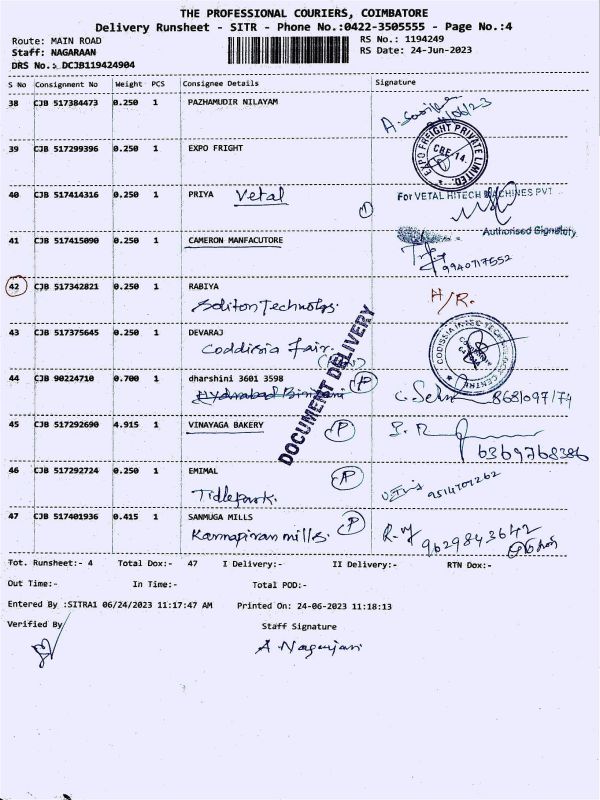 THE PROFESSIONAL COURIERS, COIMBATORE
Delivery Runsheet - SITR - Phone No.:0422-3505555 - Page No.:4
Route: MAIN ROAD
RS No.: 1194249
Staff: NAGARAAN
RS Date: 24-Jun-2023
DRS No.: DCJB119424904
S No Consignment No Weight PCS Consignee Details Signature
38 CJB 517384473 0.250 1 PAZHAMUDIR NILAYAM
39 CJB 517299396 0.250 1 EXPO FRIGHT
EXPO FREIGHT PRIVATE LIMITED
CBE-14.
40 CJB 517414316 0.250 1 PRIYA Vetal
For VETAL HITECH MACHINES PVT
Authorised Signatory
41 CJB 517415090 0.250 1 CAMERON MANFACUTORE
9940717552
42 CJB 517342821 0.250 1 RABIYA H/R.
Soliton Technolgs.
43 CJB 517375645 0.250 1 DEVARAJ
Coddissia fair.
DOCUMENT DELIVERY
44 CJB 90224710 0.700 1 dharshini 3601 3598 P
8681097174
45 CJB 517292690 4.915 1 VINAYAGA BAKERY P
6369768386
46 CJB 517292724 0.250 1 EMIMAL P
Tidlepark. 9514701262
47 CJB 517401936 0.415 1 SANMUGA MILLS P
Karmapiran mills. 9629843642
Tot. Runsheet:- 4 Total Dox:- 47 I Delivery:- II Delivery:- RTN Dox:-
Out Time:- In Time:- Total POD:-
Entered By :SITRA1 06/24/2023 11:17:47 AM Printed On: 24-06-2023 11:18:13
Verified By Staff Signature
A Nagarajan